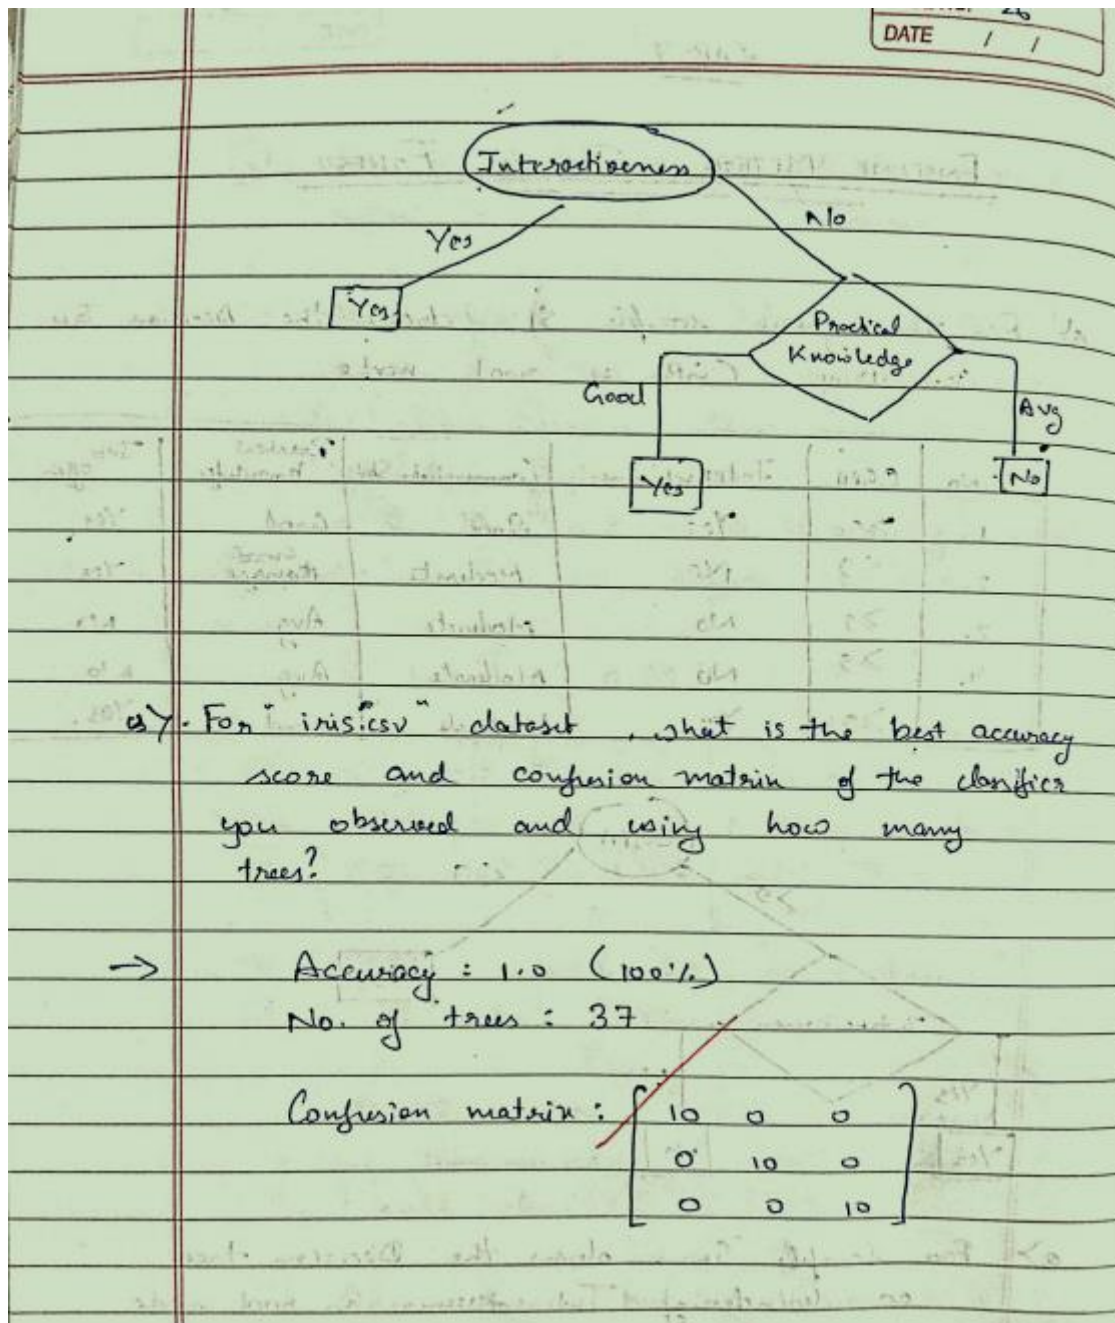 26
DATE / /
Interactiveness
Yes
No
Yes
Practical
Knowledge
Good
Avg
Yes
No
For "iris.csv" dataset, what is the best accuracy
score and confusion matrix of the classifier
you observed and using how many
trees?
→ Accuracy : 1.0 (100%)
No. of trees : 37
Confusion matrix : 10 0 0
0 10 0
0 0 10